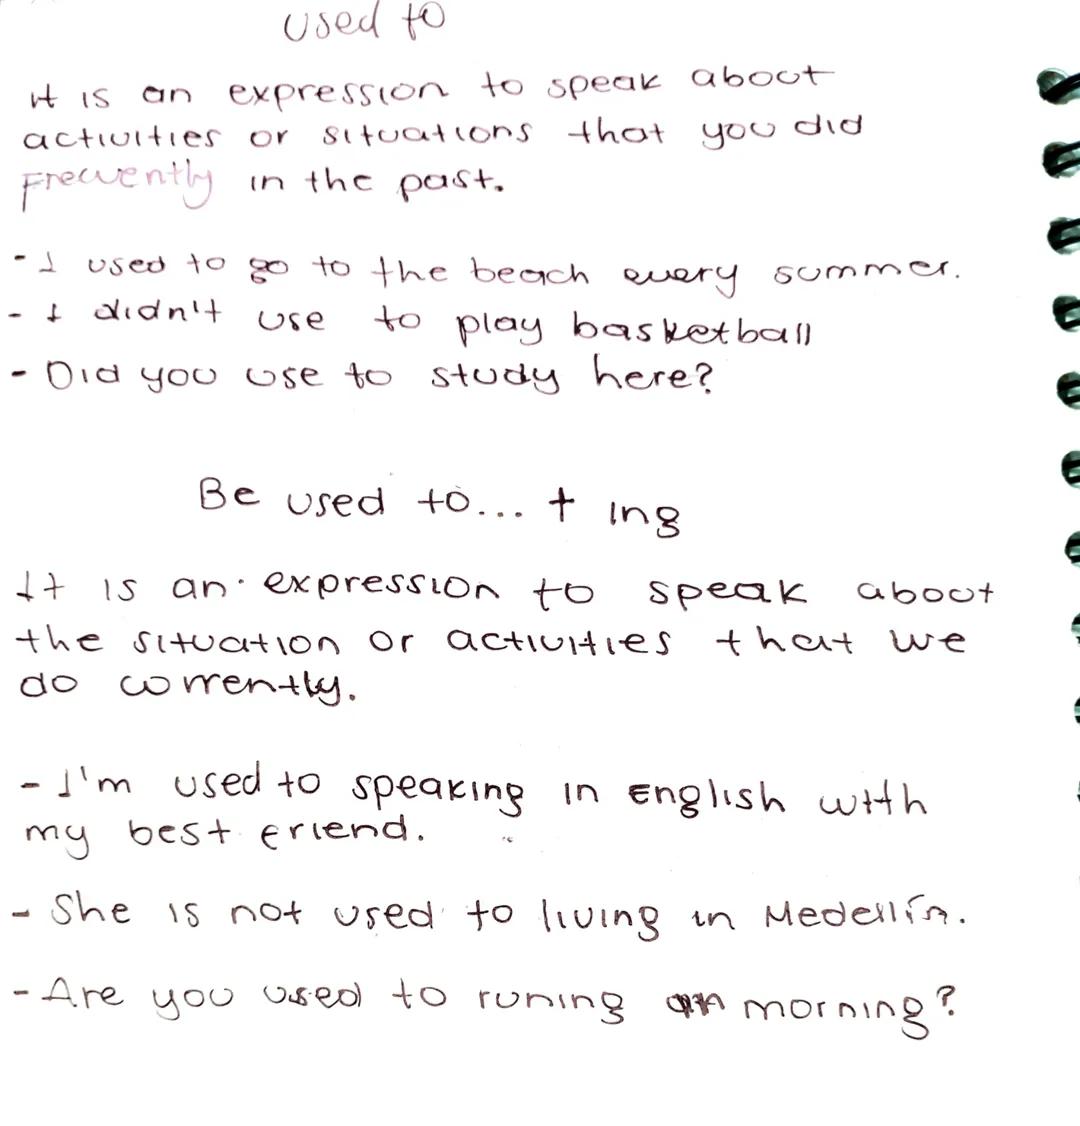 used to
it is an expression to speak about
activities or situations that you did
Frecuently in the past.
- I used to go to the beach every summer.
- I didn't use to play basketball
- Did you use to study here?
Be used to... + ing
It is an expression to speak about
the situation or activities that we
do currently.
- I'm used to speaking in English with
my best friend.
- She is not used to living in Medellín.
- Are you used to runing morning?